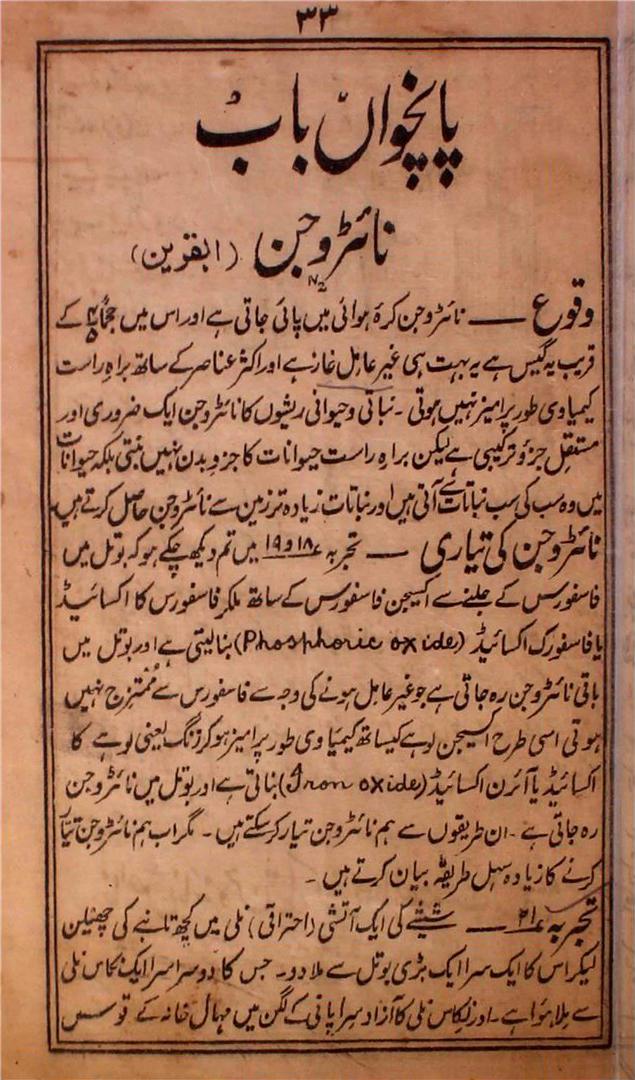 ۳۳
پانچواں باب
نائٹروجن (ابقرین)
N2
وقوع — نائٹروجن کرۂ ہوائی میں پائی جاتی ہے اور اس میں حجماً ۴/۵ کے
قریب یہ گیس ہے یہ بہت ہی غیر عامل غاز ہے اور اکثر عناصر کے ساتھ براہ راست
کیمیاوی طور پر امیز نہیں ہوتی ۔ نباتی و حیوانی ریشوں کا نائٹروجن ایک ضروری اور
مستقل جزو ترکیبی ہے لیکن براہ راست حیوانات کا جزو بدن نہیں بنتی بلکہ حیوانات
میں وہ سب کی سب نباتات سے آتی ہیں اور نباتات زیادہ تر زمین سے نائٹروجن حاصل کرتے ہیں
نائٹروجن کی تیاری — تجربہ ۱۸ و ۱۹ میں تم دیکھ چکے ہو کہ بوتل میں
فاسفورس کے جلنے سے اکسیجن فاسفورس کے ساتھ ملکر فاسفورس کا اکسائیڈ
یا فاسفورک اکسائیڈ (Phosphoric oxide) بنا لیتی ہے اور بوتل میں
باقی نائٹروجن رہ جاتی ہے جو غیر عامل ہونے کی وجہ سے فاسفورس سے ممتزج نہیں
ہوتی اسی طرح اکسیجن لوہے کیساتھ کیمیاوی طور پر امیز ہو کر زنگ یعنی لوہے کا
اکسائیڈ یا آئرن اکسائیڈ (Iron oxide) بناتی ہے اور بوتل میں نائٹروجن
رہ جاتی ہے ۔ ان طریقوں سے ہم نائٹروجن تیار کر سکتے ہیں ۔ مگر اب ہم نائٹروجن تیار
کرنے کا زیادہ سہل طریقہ بیان کرتے ہیں ۔
تجربہ ۲۱ — شیشے کی ایک آتشی (احتراقی) نلی میں کچھ تانبے کی چھیلن
لیکر اس کا ایک سرا ایک بڑی بوتل سے ملا دو ۔ جس کا دوسرا سرا ایک نکاس نلی
سے ملا ہوا ہے ۔ اور نکاس نلی کا آزاد سرا پانی کے لگن میں مہال خانہ کے قوسس